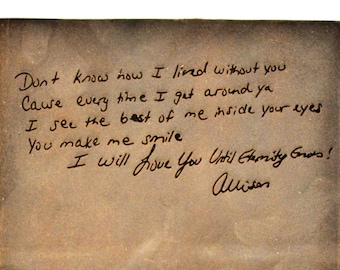 Don't know how I lived without you
Cause every time I get around ya
I see the best of me inside your eyes
You make me smile
I will Love You Until Eternity Ends!
Allison